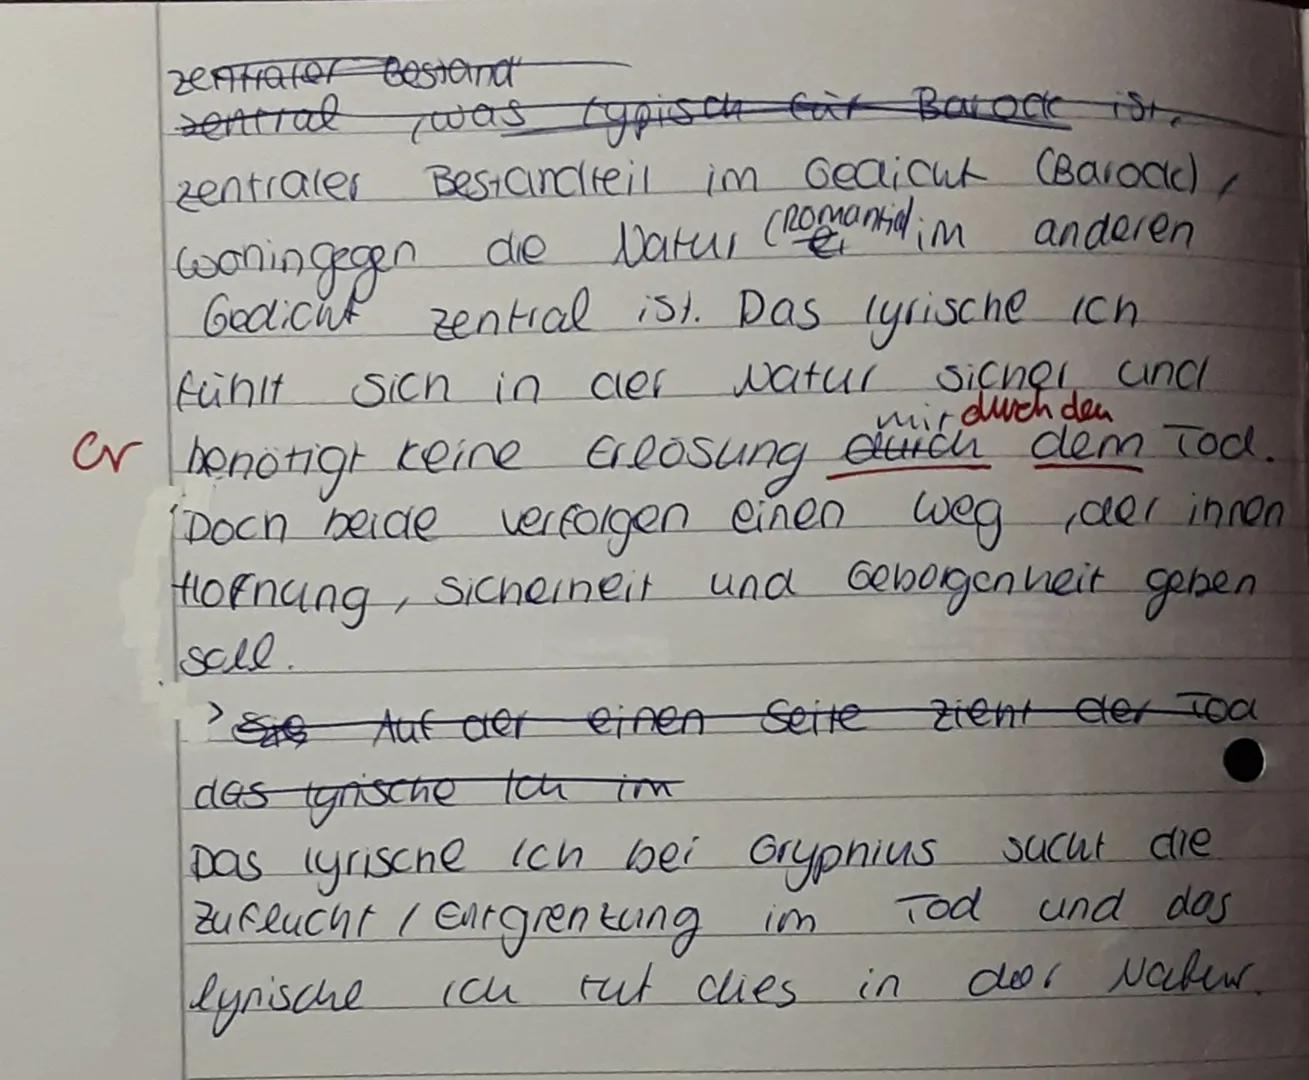 zentraler Bestand
zentral, was typisch für Barock ist,
zentraler Bestandteil im Gedicht (Barock),
woningegen die Natur (Romantik) im anderen
Gedicht zentral ist. Das lyrische Ich
fühlt sich in der Natur sicher und
mit durch den
Gr benötigt keine Erlösung durch dem Tod.
Doch beide verfolgen einen Weg, der ihnen
Hoffnung, Sicherheit und Geborgenheit geben
soll.
> Sie Auf der einen Seite zieht der Tod
das lyrische Ich im
Das lyrische Ich bei Gryphius sucht die
Zuflucht / Entgrenzung im Tod und das
lyrische Ich tut dies in der Natur.